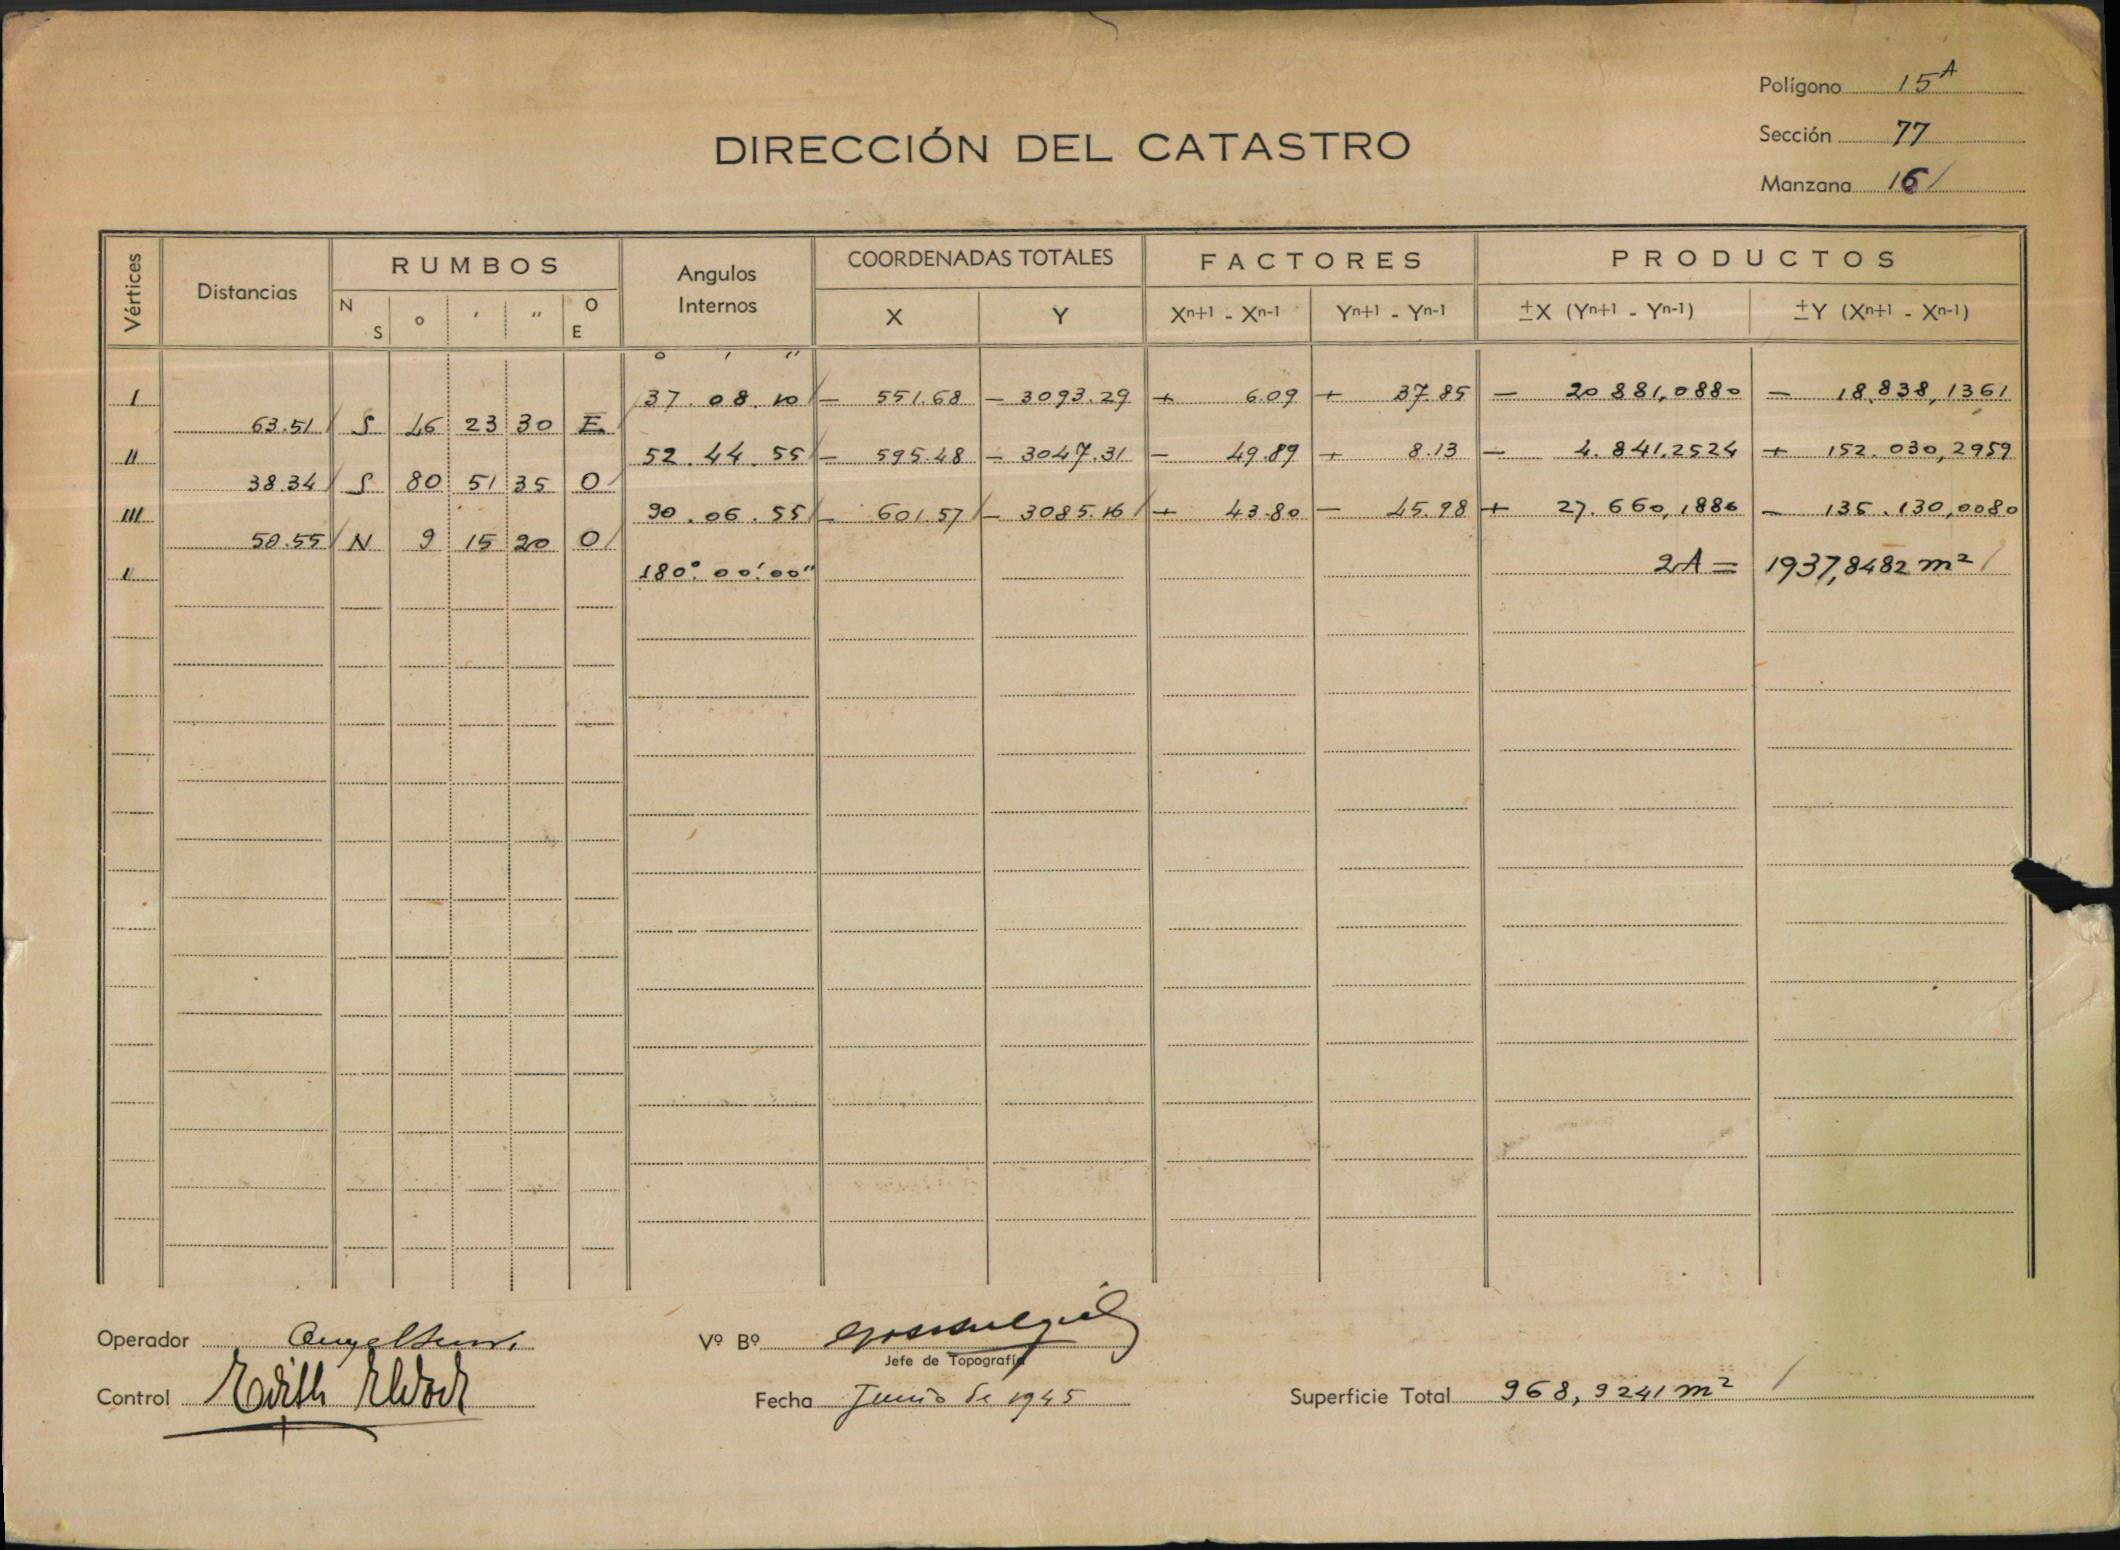 Polígono 15 A
DIRECCIÓN DEL CATASTRO
Sección 77
Manzana 16 /
Vértices
Distancias
RUMBOS
N S
o ' "
O E
Angulos Internos
COORDENADAS TOTALES
X
Y
FACTORES
Xn+1 - Xn-1
Yn+1 - Yn-1
PRODUCTOS
±X (Yn+1 - Yn-1)
±Y (Xn+1 - Xn-1)
o ' "
I 37.08.10 / - 551.68 - 3093.29 + 6.09 + 37.85 - 20 881,0880 - 18.838,1361
63.51 / S 46 23 30 E
II 52.44.55 / - 595.48 - 3047.31 - 49.89 + 8.13 - 4.841.2524 + 152.030,2959
38.34 / S 80 51 35 O /
III 90.06.55 / - 601.57 / - 3085.16 / + 43.80 - 45.98 + 27.660,1886 - 135.130,0080
50.55 / N 9 15 20 O /
I 180°.00'.00" 2A = 1937,8482 m² /
Operador
Vº Bº
Jefe de Topografía
Control
Fecha Junio de 1945
Superficie Total 968,9241 m² /